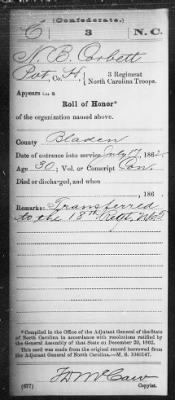 (Confederate.)
C 3 N.C.
N. B. Corbett
Pvt, Co. H, 3 Regiment North Carolina Troops.
Appears on a
Roll of Honor*
of the organization named above.
County Bladen
Date of entrance into service July 17, 1862.
Age 30; Vol. or Conscript Con.
Died or discharged, and when
, 186 .
Remarks: Transferred
to the 18th Regt,
*Compiled in the Office of the Adjutant General of the State
of North Carolina in accordance with resolutions ratified by
the General Assembly of that State on
This card was made from the original record borrowed from
the Adjutant General of North Carolina.—
(637) Copyist.